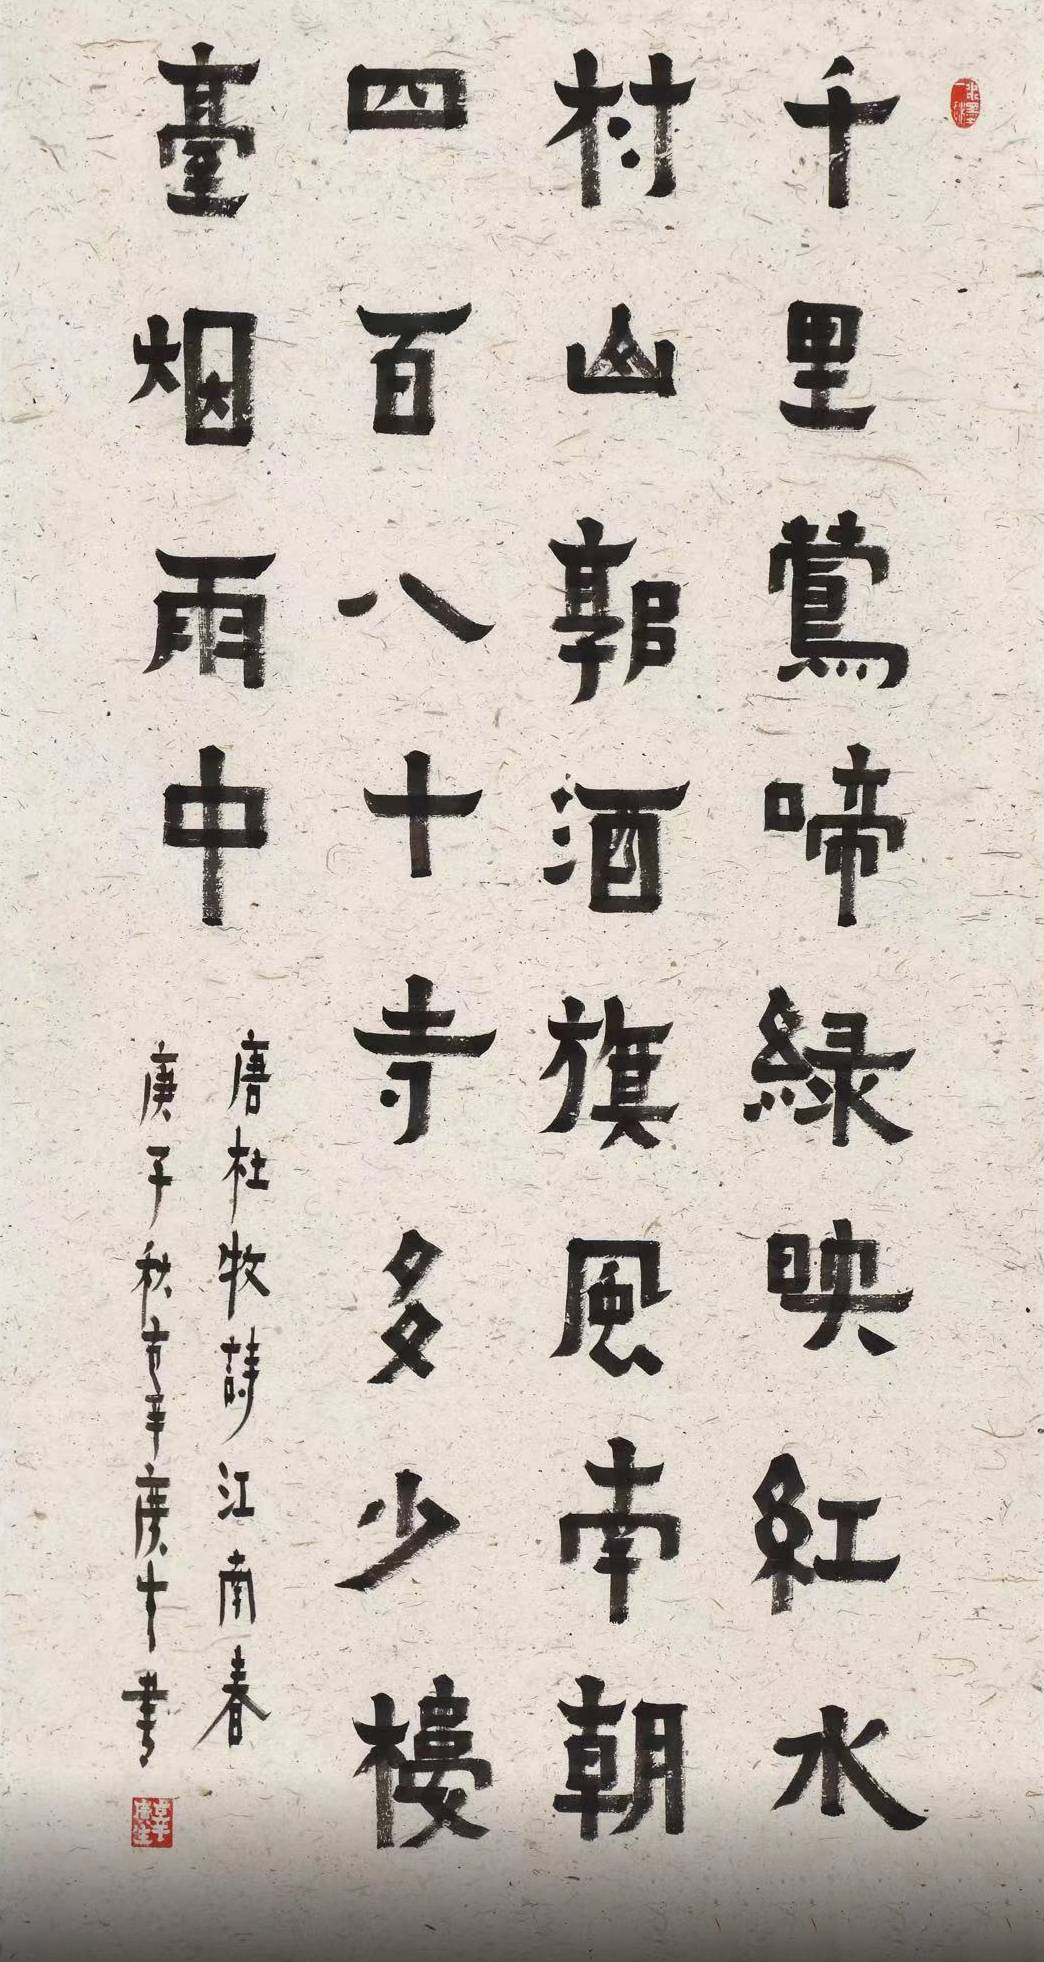 千里鶯啼緑映紅水
村山郭酒旗風南朝
四百八十寺多少樓
臺烟雨中
唐杜牧詩江南春
庚子秋
書